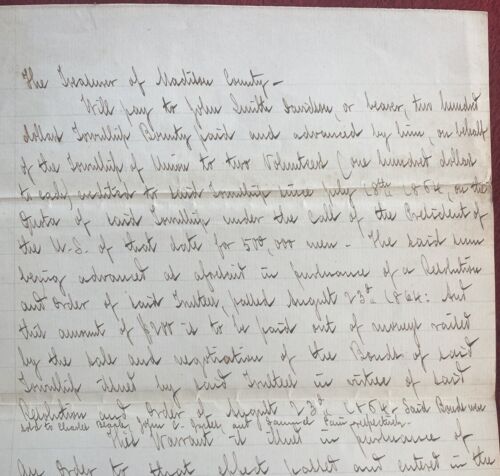 The Treasurer of Madison County—
Will pay to John Smith Davidson, or bearer, two hundred
dollars Township Bounty paid and advanced by him, on behalf
of the Township of Union to two Volunteers (one hundred dollars
to each) credited to said Township since July 18th 1864, on the
Quota of said Township under the Call of the President of
the U.S. of that date for 500,000 men - The said sum
being advanced as aforesaid in pursuance of a Resolution
and Order of said Trustees, passed August 23d 1864: And
this amount of $200 is to be paid out of moneys raised
by the sale and negotiation of the Bonds of said
Township issued by said Trustees in virtue of said
Resolution and Order of August 23d 1864. Said Bonds were
sold to Charles John C. and Samuel respectively.
This Warrant is issued in pursuance of
An Order to that effect passed and entered in the